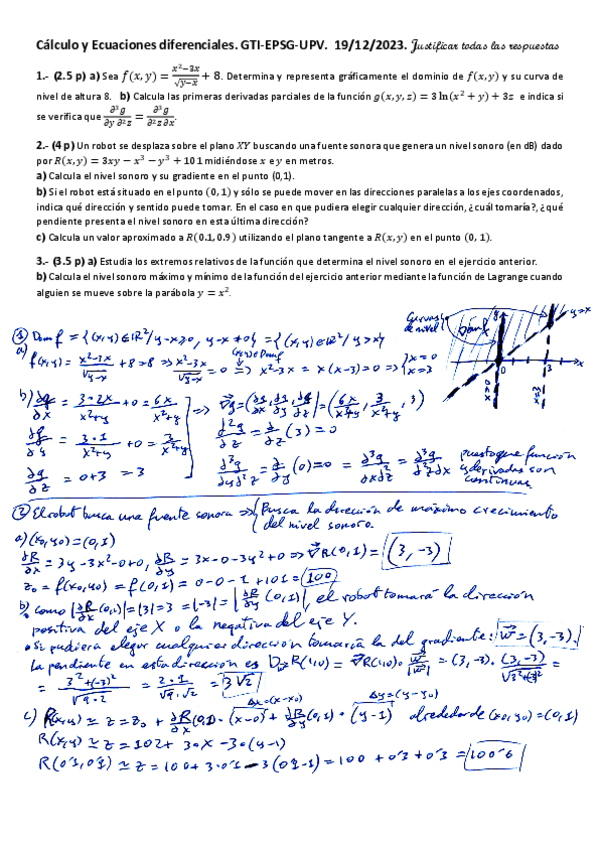 Cálculo y Ecuaciones diferenciales. GTI-EPSG-UPV. 19/12/2023. Justificar todas las respuestas
1.- (2.5 p) a) Sea f(x, y) = (x²−3x)/√(y−x) + 8. Determina y representa gráficamente el dominio de f(x, y) y su curva de
nivel de altura 8. b) Calcula las primeras derivadas parciales de la función g(x, y, z) = 3 ln(x² + y) + 3z e indica si
se verifica que ∂³g/∂y ∂²z = ∂³g/∂²z ∂x.
2.- (4 p) Un robot se desplaza sobre el plano XY buscando una fuente sonora que genera un nivel sonoro (en dB) dado
por R(x, y) = 3xy − x³ − y³ + 101 midiéndose x e y en metros.
a) Calcula el nivel sonoro y su gradiente en el punto (0,1).
b) Si el robot está situado en el punto (0, 1) y sólo se puede mover en las direcciones paralelas a los ejes coordenados,
indica qué dirección y sentido puede tomar. En el caso en que pudiera elegir cualquier dirección, ¿cuál tomaría?, ¿qué
pendiente presenta el nivel sonoro en esta última dirección?
c) Calcula un valor aproximado a R(0.1, 0.9) utilizando el plano tangente a R(x, y) en el punto (0, 1).
3.- (3.5 p) a) Estudia los extremos relativos de la función que determina el nivel sonoro en el ejercicio anterior.
b) Calcula el nivel sonoro máximo y mínimo de la función del ejercicio anterior mediante la función de Lagrange cuando
alguien se mueve sobre la parábola y = x².
① Dom f = {(x,y) ∈ R² / y-x ≥ 0, y-x ≠ 0} = {(x,y) ∈ R² / y > x}
Curvas de nivel
Dom f
y=x
8
0
3
x
x=0
x=3
a) f(x,y) = (x²-3x)/√(y-x) + 8 = 8 ⇒ (x²-3x)/√(y-x) = 0 ⇒ x²-3x = x(x-3) = 0 ⇒ { x=0 x=3
(x,y) ∈ Dom f
b) ∂g/∂x = 3·2x/(x²+y) + 0 = 6x/(x²+y)
⇒ ∇g = (∂g/∂x, ∂g/∂y, ∂g/∂z) = (6x/(x²+y), 3/(x²+y), 3)
∂g/∂y = 3·1/(x²+y) + 0 = 3/(x²+y)
∂²g/∂z² = ∂/∂z (3) = 0
∂g/∂z = 0+3 = 3
∂³g/∂y∂z² = ∂/∂z (0) = 0 = ∂³g/∂x∂z² = ∂³g/∂z²∂x puesto que función y derivadas son continuas
② El robot busca una fuente sonora ⇒ Busca la dirección de máximo crecimiento
del nivel sonoro.
a) (x₀,y₀) = (0,1)
∂R/∂x = 3y - 3x² - 0 + 0, ∂R/∂y = 3x - 0 - 3y² + 0 ⇒ ∇R(0,1) = (3, -3)
z₀ = f(x₀,y₀) = f(0,1) = 0 - 0 - 1 + 101 = 100
b) como |∂R/∂x (0,1)| = |3| = 3 = |-3| = |∂R/∂y (0,1)|, el robot tomará la dirección
positiva del eje X o la negativa del eje Y.
• Si pudiera elegir cualquier dirección tomaría la del gradiente: w = (3, -3).
La pendiente en esta dirección es D_w R(1,0) = ∇R(1,0) · w/|w| = (3, -3) · (3, -3)/√(3²+(-3)²) =
= (3²+(-3)²)/√(9·2) = 9·2/(√9·√2) = 3√2
Δx=(x-x₀) Δy=(y-y₀)
c) R(x,y) ≃ z = z₀ + ∂R/∂x (0,1) · (x-0) + ∂R/∂y (0,1) · (y-1) alrededor de (x₀,y₀) = (0,1)
R(x,y) ≃ z = 102 + 3·x - 3·(y-1)
R(0'1, 0'9) ≃ z = 100 + 3·0'1 - 3(0'9-1) = 100 + 0'3 + 0'3 = 100'6